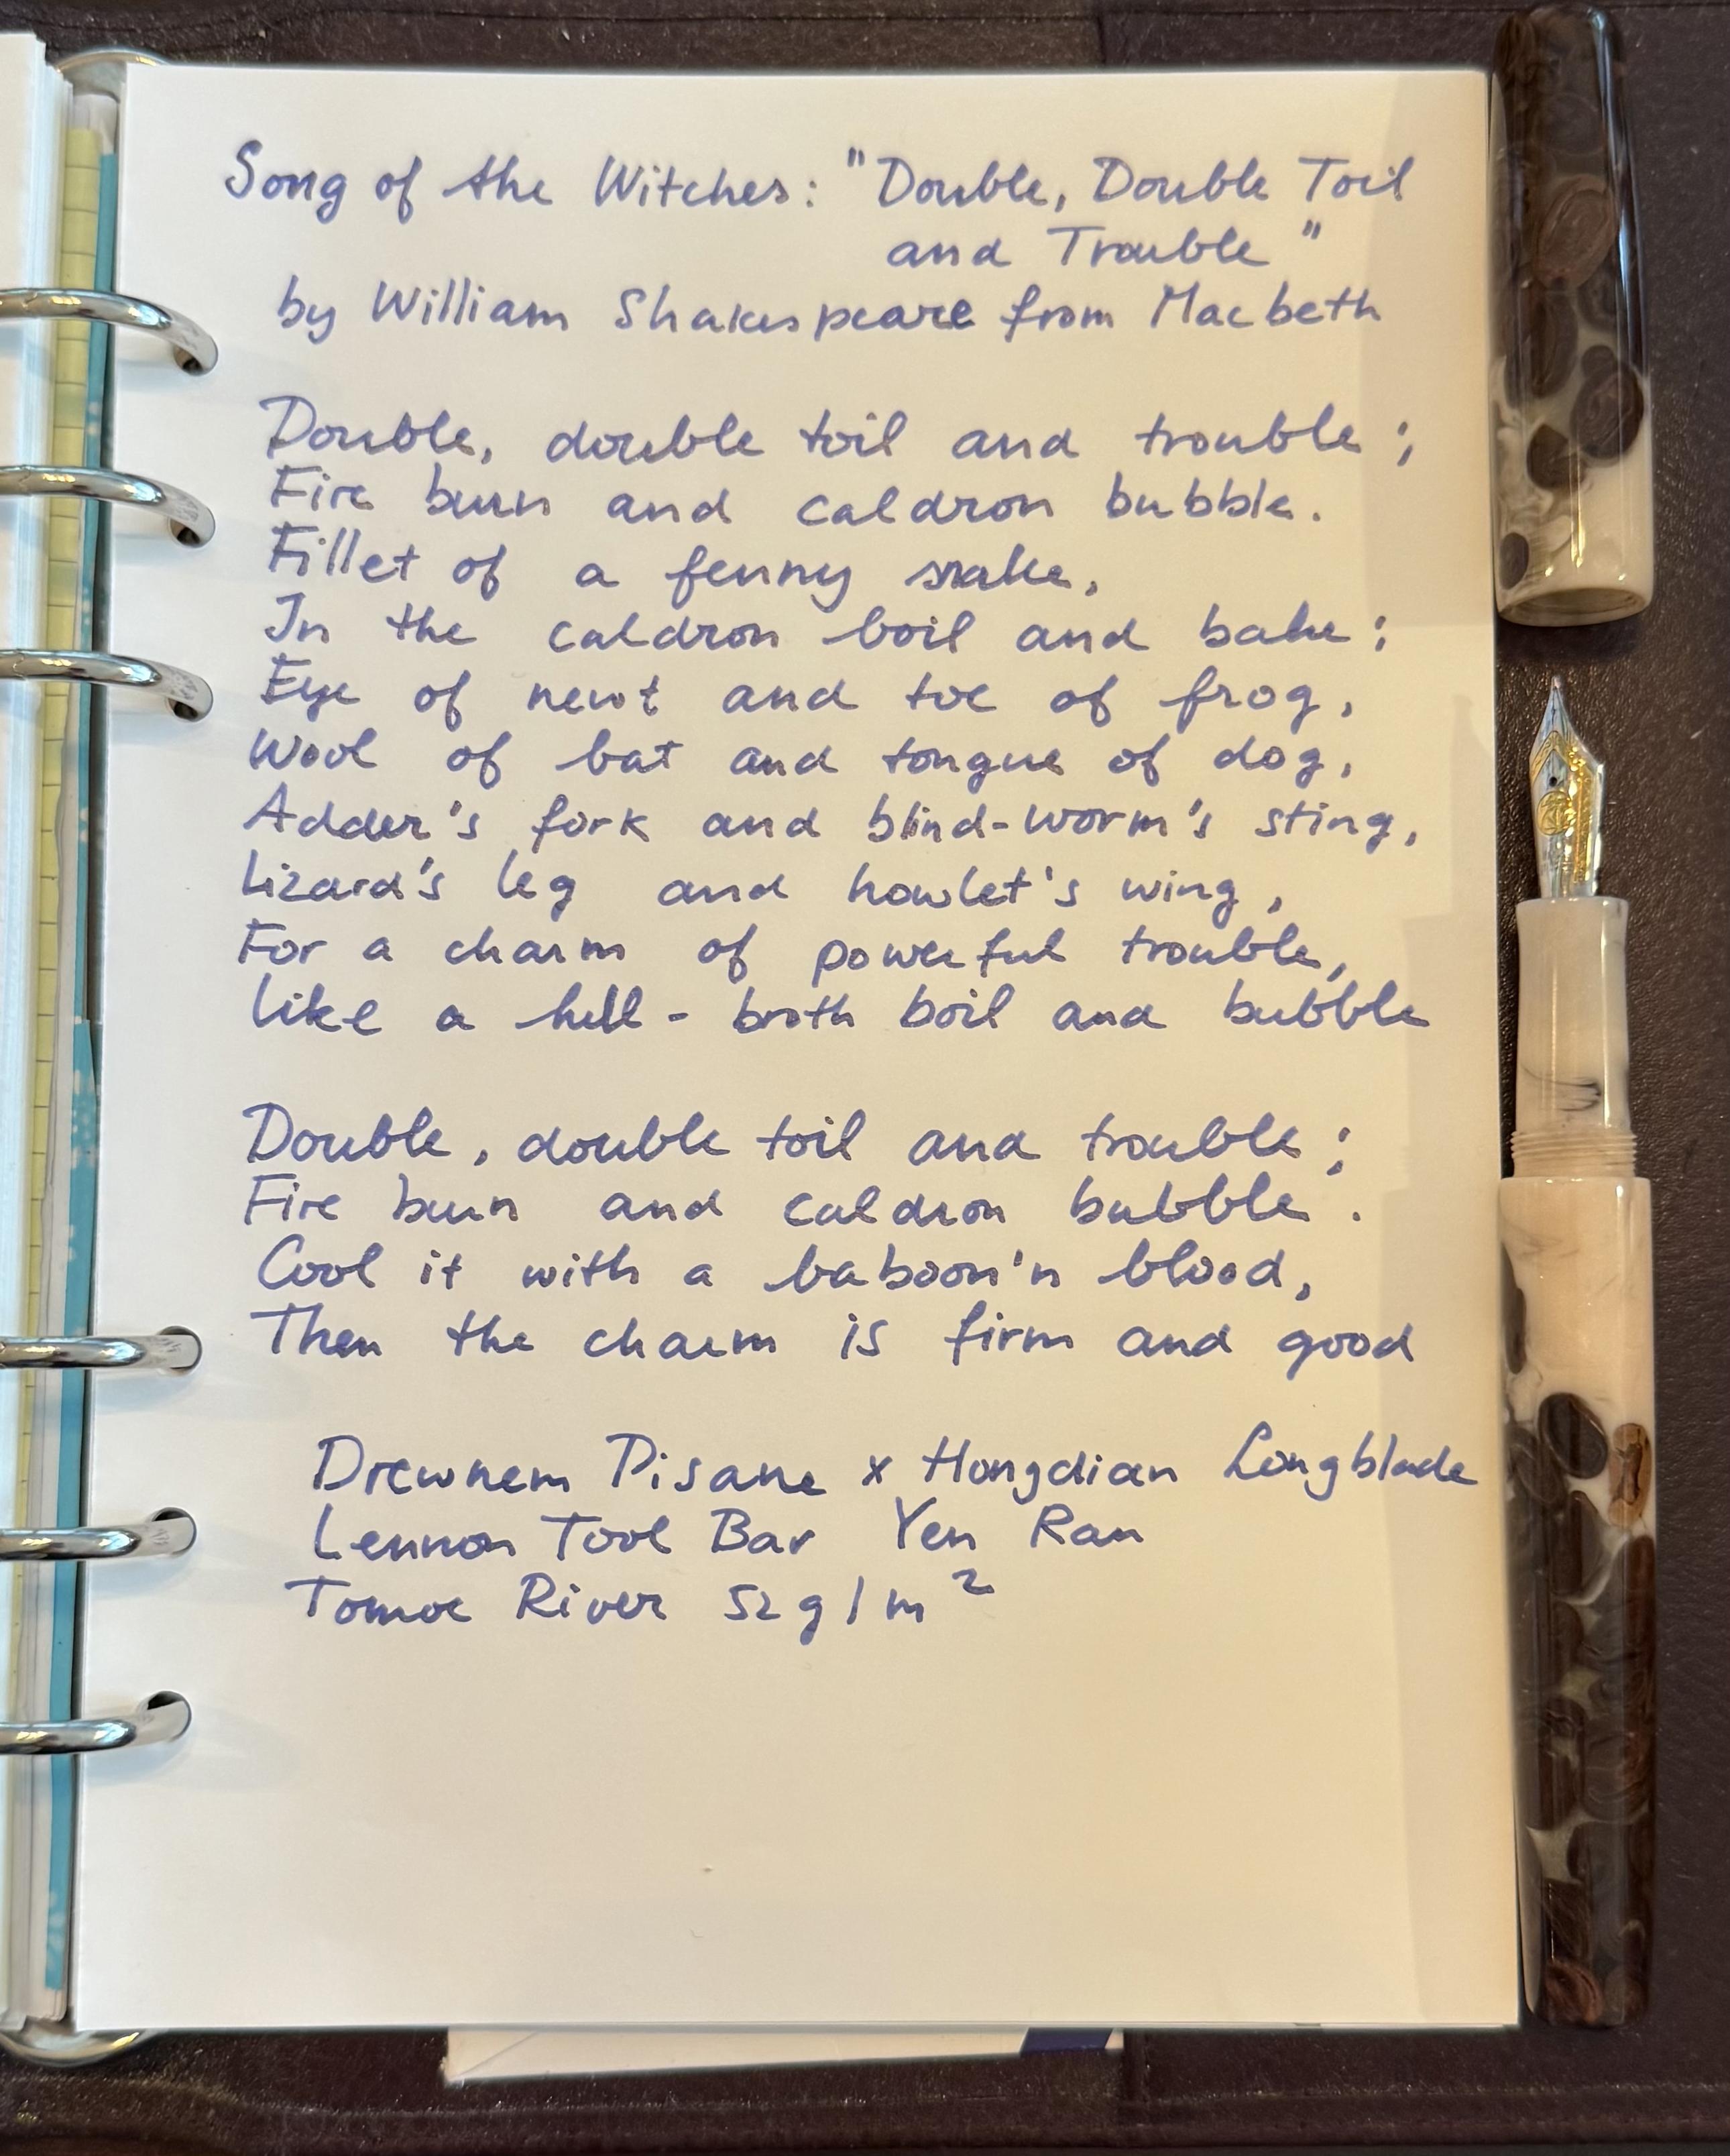 Song of the Witches: "Double, Double Toil
and Trouble"
by William Shakespeare from Macbeth
Double, double toil and trouble;
Fire burn and caldron bubble.
Fillet of a fenny snake,
In the caldron boil and bake;
Eye of newt and toe of frog,
Wool of bat and tongue of dog,
Adder's fork and blind-worm's sting,
Lizard's leg and howlet's wing,
For a charm of powerful trouble,
Like a hell-broth boil and bubble
Double, double toil and trouble;
Fire burn and caldron bubble.
Cool it with a baboon'n blood,
Then the charm is firm and good
Drewnem Pisane x Hongdian Longblade
Lennon Tool Bar Yen Ran
Tomoe River 52g/m²